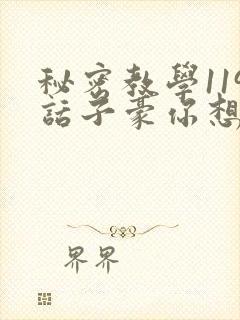 秘密教學119
話子豪你想
界界